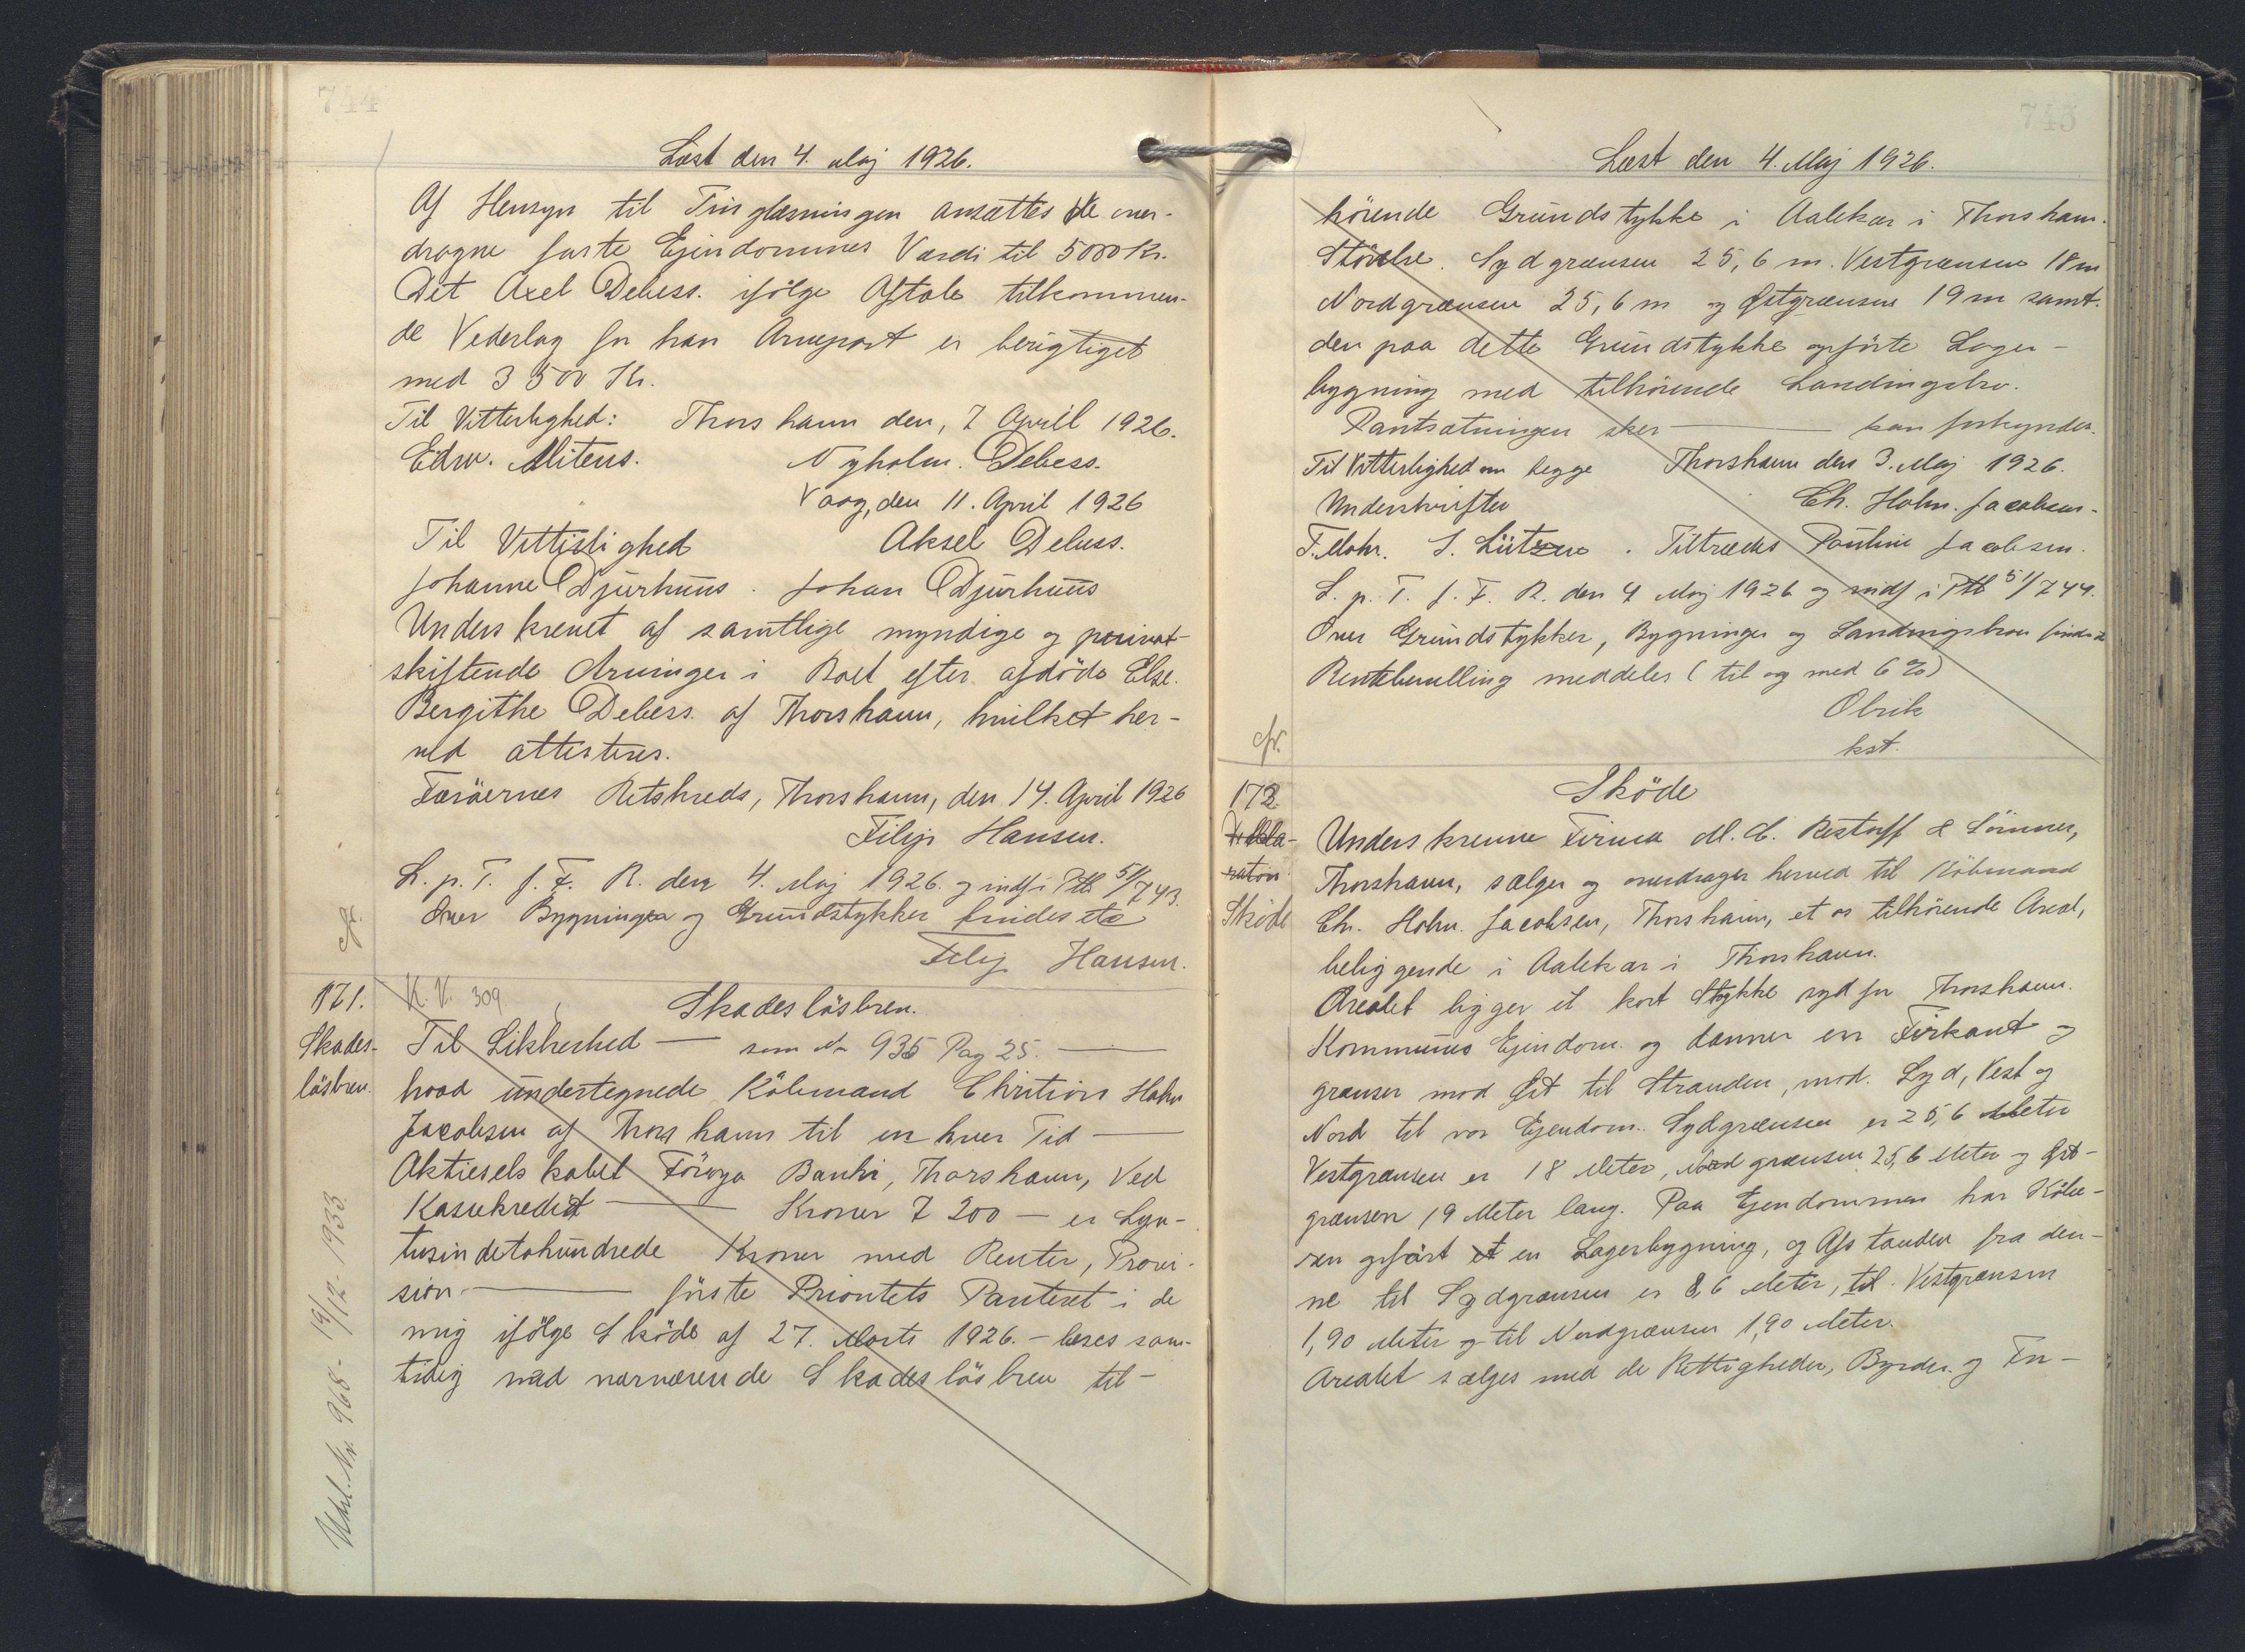 744
Læst den 4. Maj 1926.
Af Hensyn til Tinglæsningen ansættes de over-
dragne faste Ejendommes Værdi til 5000 Kr.
Det Axel Debess. ifölge Aftale tilkommen-
de Vederlag for han Arvepart er berigtiget
med 3500 Kr.
Til Vitterlighed: Thorshavn den, 7 April 1926.
Edw. Mitens. Nyholm. Debess.
Vaag, den 11. April 1926
Til Vitterlighed Aksel Debess.
Johanne Djurhuus. Johan Djurhuus
Underskrevet af samtlige myndige og privat-
skiftende Arvinger i Boet efter afdöde Else.
Bergithe Debess. af Thorshavn, hvilket her-
ved attesteres.
Færöernes Retskreds, Thorshavn, den 14. April 1926
Filip Hansen.
L. p. T. f. F. R. den 4. Maj 1926. og indf i Ptb 51/743.
Over Bygninger og Grundstykker findes etc
Filip Hansen.
cfr.
171.
Skades-
lösbrev.
K. V. 309
Skadeslösbrev.
Til Sikkerhed — som No 935 Pag 25. —
hvad undertegnede Köbmand Christian Holm
Jacobsen af Thorshavn til en hver Tid —
Aktieselskabet Föroya Banki, Thorshavn, Ved
Kassekredit — Kroner 7200 — er Syv-
tusindetohundrede Kroner med Renter, Provi-
sion — förste Prioritets Panteret i de
mig ifölge Sköde af 27. Marts 1926. — læses sam-
tidig med nærværende Skadeslösbrev til-
Udsl. Nr. 968 - 19/12-1933.
745
Læst den 4. Maj 1926.
hörende Grundstykke i Aalekær i Thorshavn.
Störelse. Sydgrænsen 25,6 m. Vestgrænsen 18 m
Nordgrænsen 25,6 m og Østgrænsen 19 m samt.
den paa dette Grundstykke opförte Lager-
bygning med tilhörende Landingsbro.
Pantsætningen sker — kan forkyndes.
Til Vitterlighed om begge Thorshavn den 3. Maj 1926.
Underskrifter Ch. Holm. Jacobsen.
F. Mohr. S. Lützen. Tiltrædes Pauline Jacobsen.
L. p. T. f. F. R. den 4 Maj 1926 og indf i Ptb 51/744.
Over Grundstykker, Bygninger og Landingsbroen findes etc
Rentebevilling meddeles (til og med 6 %)
Olrik
kst.
cfr.
172
Dekla-
ration
Sköde
Sköde
Underskrevne Firma M. C. Restorff & Sönner,
Thorshavn, sælger og overdrager herved til Köbmand
Chr. Holm. Jacobsen, Thorshavn, et os tilhörende Areal,
beliggende i Aalekær i Thorshavn.
Arealet ligger et kort Stykke syd for Thorshavn.
Kommunes Ejendom. og danner en Firkant og
grænser mod Øst til Stranden, mod. Syd, Vest og
Nord til vor Ejendom. Sydgrænsen er 25,6 Meter
Vestgrænsen er 18 Meter, Nordgrænsen 25,6 Meter og Øst-
grænsen 19 Meter lang. Paa Ejendommen har Köbe-
ren opfört et en Lagerbygning, og Afstanden fra den-
ne til Sydgrænsen er 8,6 Meter, til Vestgrænsen
1,90 Meter og til Nordgrænsen 1,90 Meter.
Arealet sælges med de Rettigheder, Byrder og For-